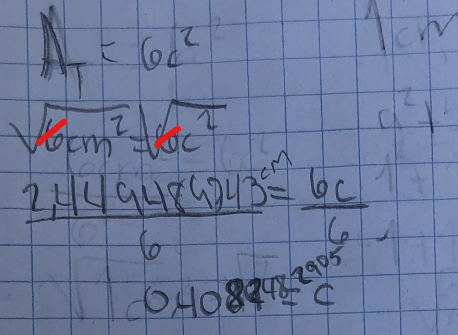 A_T = 6c²
√6cm² = √6c²
2,449489743 cm = 6c
6 6
0,4082482905 = c
1cm